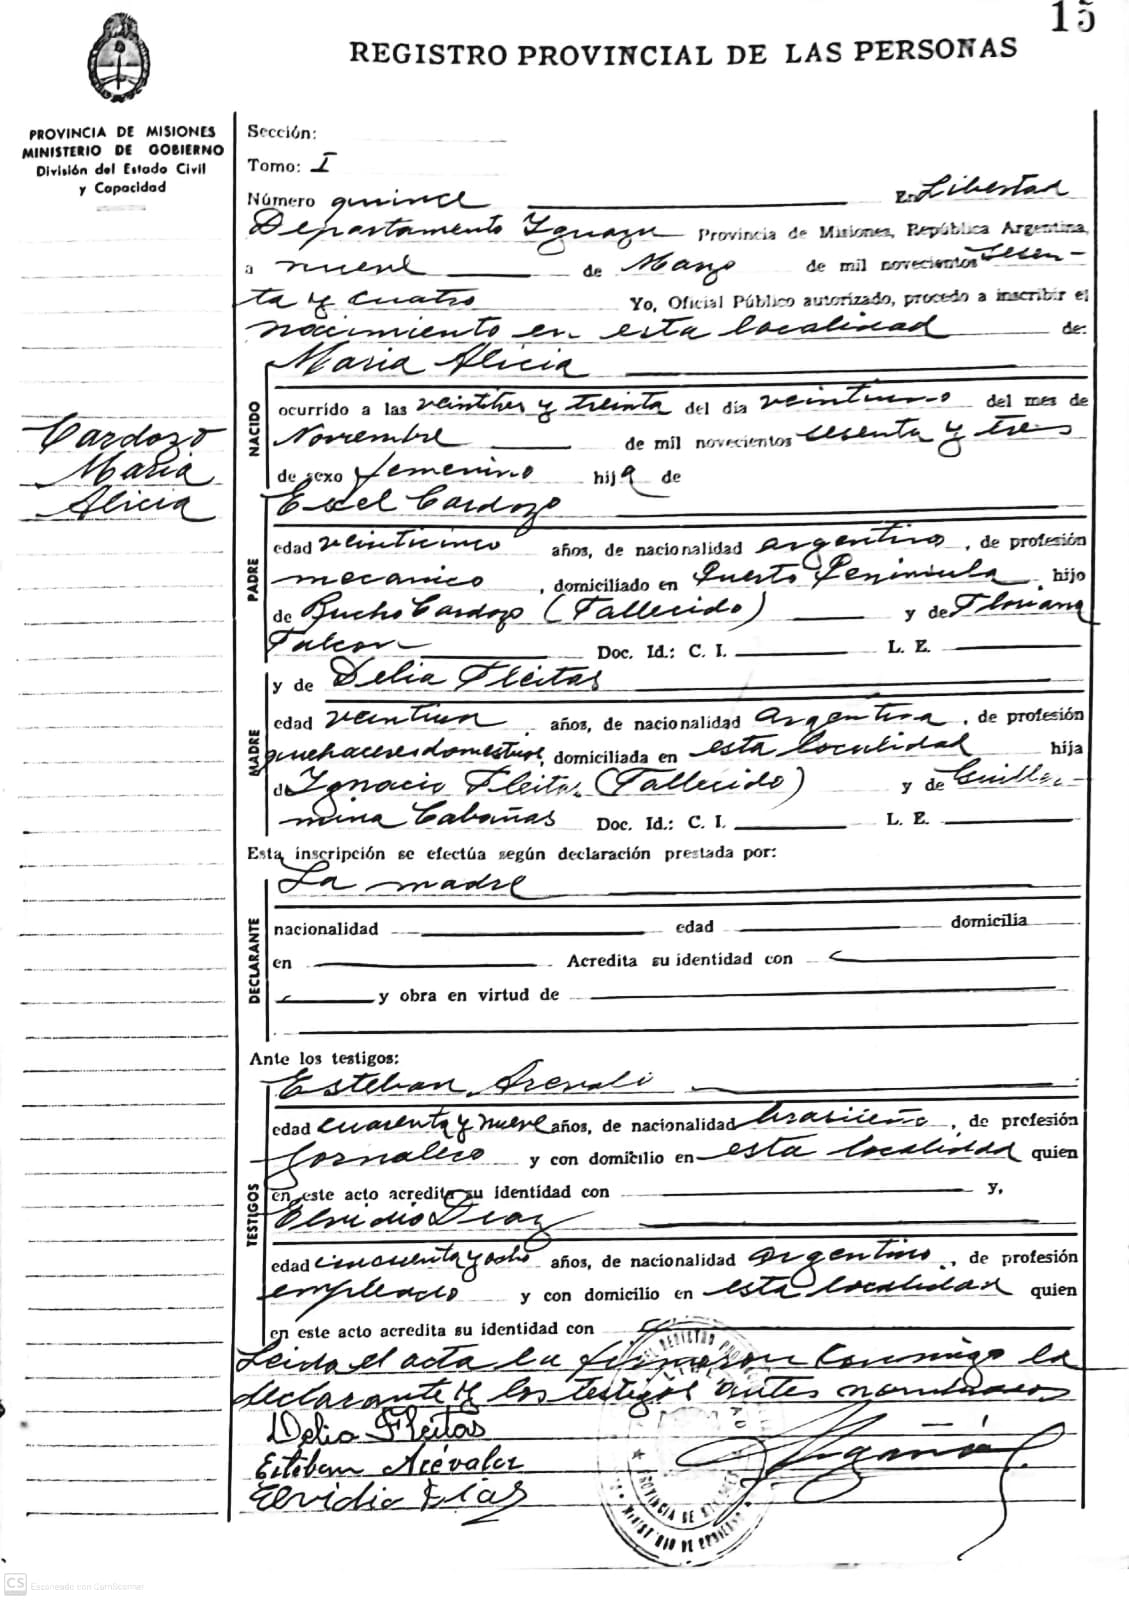 15
REGISTRO PROVINCIAL DE LAS PERSONAS
PROVINCIA DE MISIONES
MINISTERIO DE GOBIERNO
División del Estado Civil
y Capacidad
Cardozo
Maria
Alicia
Sección:
Tomo: I
Número quince En Libertad
Departamento Iguazu Provincia de Misiones, República Argentina,
a nueve de Marzo de mil novecientos sesen-
ta y cuatro Yo, Oficial Público autorizado, procedo a inscribir el
nacimiento en esta localidad de:
Maria Alicia
NACIDO
ocurrido a las veintitres y treinta del día veintiuno del mes de
Noviembre de mil novecientos sesenta y tres
de sexo femenino hija de
Exel Cardozo
PADRE
edad veinticinco años, de nacionalidad argentino, de profesión
mecanico, domiciliado en Puerto Peninsula hijo
de Cardozo (Fallecido) y de Floriana
Falcon Doc. Id.: C. I. L. E.
y de Delia Fleitas
MADRE
edad veintiun años, de nacionalidad argentina, de profesión
quehaceres domesticos, domiciliada en esta localidad hija
d Ignacio Fleitas (Fallecido) y de Guiller-
mina Cabañas Doc. Id.: C. I. L. E.
Esta inscripción se efectúa según declaración prestada por:
La madre
DECLARANTE
nacionalidad edad domicilia
en Acredita su identidad con
y obra en virtud de
Ante los testigos:
Esteban Arevalo
TESTIGOS
edad cuarenta y nueve años, de nacionalidad brasileño, de profesión
jornalero y con domicilio en esta localidad quien
en este acto acredita su identidad con y,
Elvidio Diaz
edad cincuenta y ocho años, de nacionalidad argentino, de profesión
empleado y con domicilio en esta localidad quien
en este acto acredita su identidad con
Leida el acta la firmaron conmigo la
declarante y los testigos antes nombrados
Delia Fleitas
Esteban Arévalo
Elvidio Diaz
PROVINCIA DE MISIONES
MINISTERIO DE GOBIERNO
CS Escaneado con CamScanner